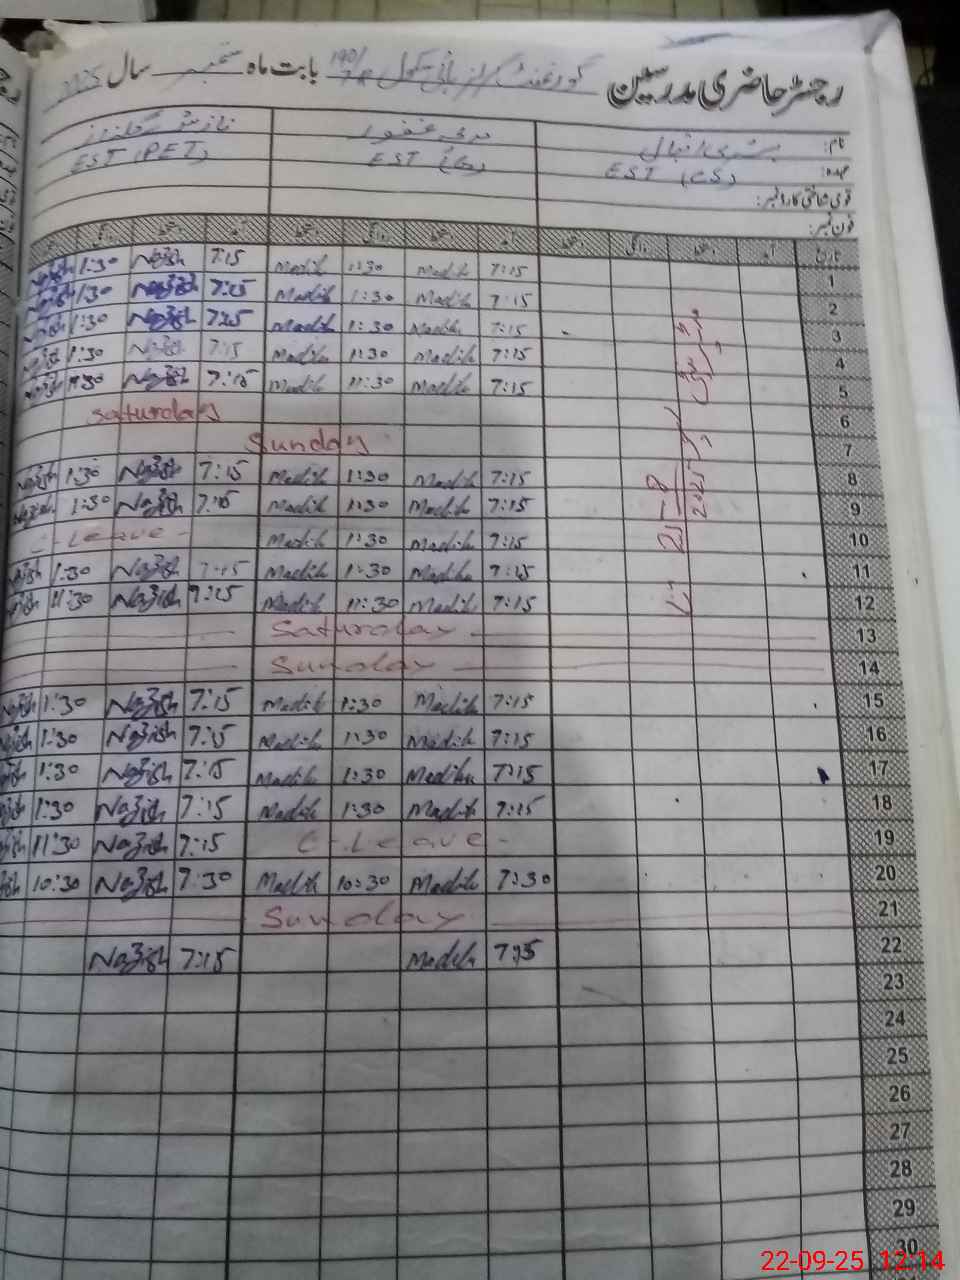 رجسٹر حاضری مدرسین گورنمنٹ گرلز ہائی سکول 190/7R بابت ماہ ستمبر سال 2025
نام: بشریٰ اقبال مدیحہ غفور
عہدہ: EST (CS) EST EST (PET)
قومی شناختی کارڈ نمبر:
فون نمبر:
تاریخ آمد دستخط روانگی دستخط آمد دستخط روانگی دستخط آمد دستخط روانگی
1 7:15 Madih 1:30 Madih 7:15 Nazish 1:30 Nazish
2 7:15 Madih 1:30 Madih 7:15 Nazish 1:30 Nazish
3 7:15 Madih 1:30 Madih 7:15 Nazish 1:30 Nazish
4 7:15 Madih 1:30 Madih 7:15 Nazish 1:30 Nazish
5 7:15 Madih 11:30 Madih 7:15 Nazish 11:30 Nazish
6 Saturday
7 Sunday
8 7:15 Madih 1:30 Madih 7:15 Nazish 1:30 Nazish
9 7:15 Madih 1:30 Madih 7:15 Nazish 1:30 Nazish
10 7:15 Madih 1:30 Madih C-Leave-
11 7:15 Madih 1:30 Madih 7:15 Nazish 1:30 Nazish
12 7:15 Madih 11:30 Madih 7:15 Nazish 11:30 Nazish
13 Saturday
14 Sunday
15 7:15 Madih 1:30 Madih 7:15 Nazish 1:30 Nazish
16 7:15 Madih 1:30 Madih 7:15 Nazish 1:30 Nazish
17 7:15 Madih 1:30 Madih 7:15 Nazish 1:30 Nazish
18 7:15 Madih 1:30 Madih 7:15 Nazish 1:30 Nazish
19 C-Leave- 7:15 Nazish 11:30 Nazish
20 7:30 Madih 10:30 Madih 7:30 Nazish 10:30 Nazish
21 Sunday
22 7:15 Madih 7:15 Nazish
23
24
25
26
27
28
29
30
22-09-25 12:14